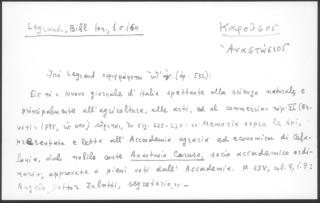 Legrand, Bibl. Ion., 1 σ. 164
Καροῦσος
Ἀναστάσιος
Ὑπὸ Legrand περιγράφεται (ἀρ. 532):
Εἰς τὸ « Nuovo giornale d'Italia spettante alla scienza naturale e
principalmente all'agricoltura, alle arti, ed al commercio» τόμ. VI
1795, in 4ο) σελ. 225-230: «Memoria sopra le api,
presentata e letta all'Accademia agraria ed economica di Cefa-
lonia, dal nobile conte Anastasio Caruso, socio accademico ordi-
nario, approvata a pieni voti dall'Accademia. P. 238, col. 2, l. 9:
Angelo dottor Zulatti, segretario,»